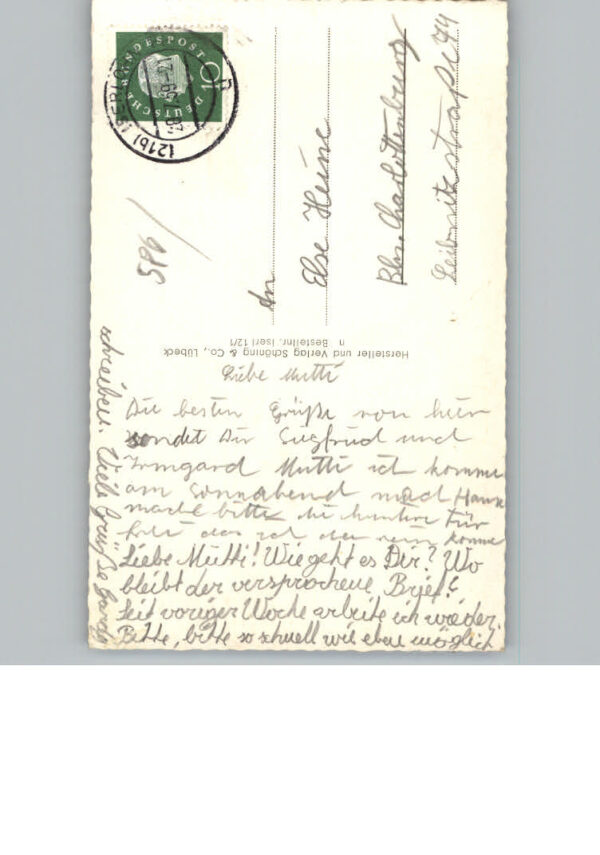 DEUTSCHE BUNDESPOST
10
(21b) ISERLOHN
28.7.59.-21
586
An
Else Heine
Bln. Charlottenburg
Leibnitzstraße 74
Hersteller und Verlag Schöning & Co., Lübeck
n Bestellnr. Iserl 12/1
Liebe Mutti
Die besten Grüße von hier
sendet Dir Siegfried und
Irmgard Mutti ich komme
am Sonnabend nach Hause
mache bitte die hintere Tür
das ich da rein komme
Liebe Mutti! Wie geht es Dir? Wo
bleibt der versprochene Brief?
Seit voriger Woche arbeite ich wieder.
Bitte, bitte so schnell wie eben möglich
schreiben. Viele Grüße